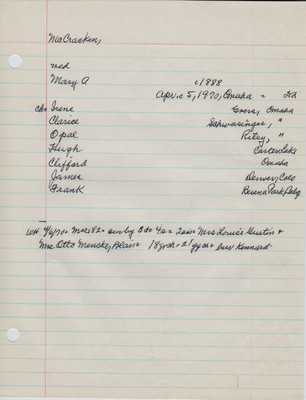 McCracken,
med
Mary A c1888
Apr. 5, 1970, Omaha - 
Ch. Irene Gress, Omaha
Clarice Schwasinger, "
Opal Ritzy, "
Hugh Carter Lake
Clifford Omaha
James Denver, Colo
Frank Buena Park, Calif
WH 4/6/70= M=82= survby 3d= 4s= 2sis= Mrs Louise Gustin &
Mrs Otto Menske, Blair= 18grch= 21ggch= bur Kennard.